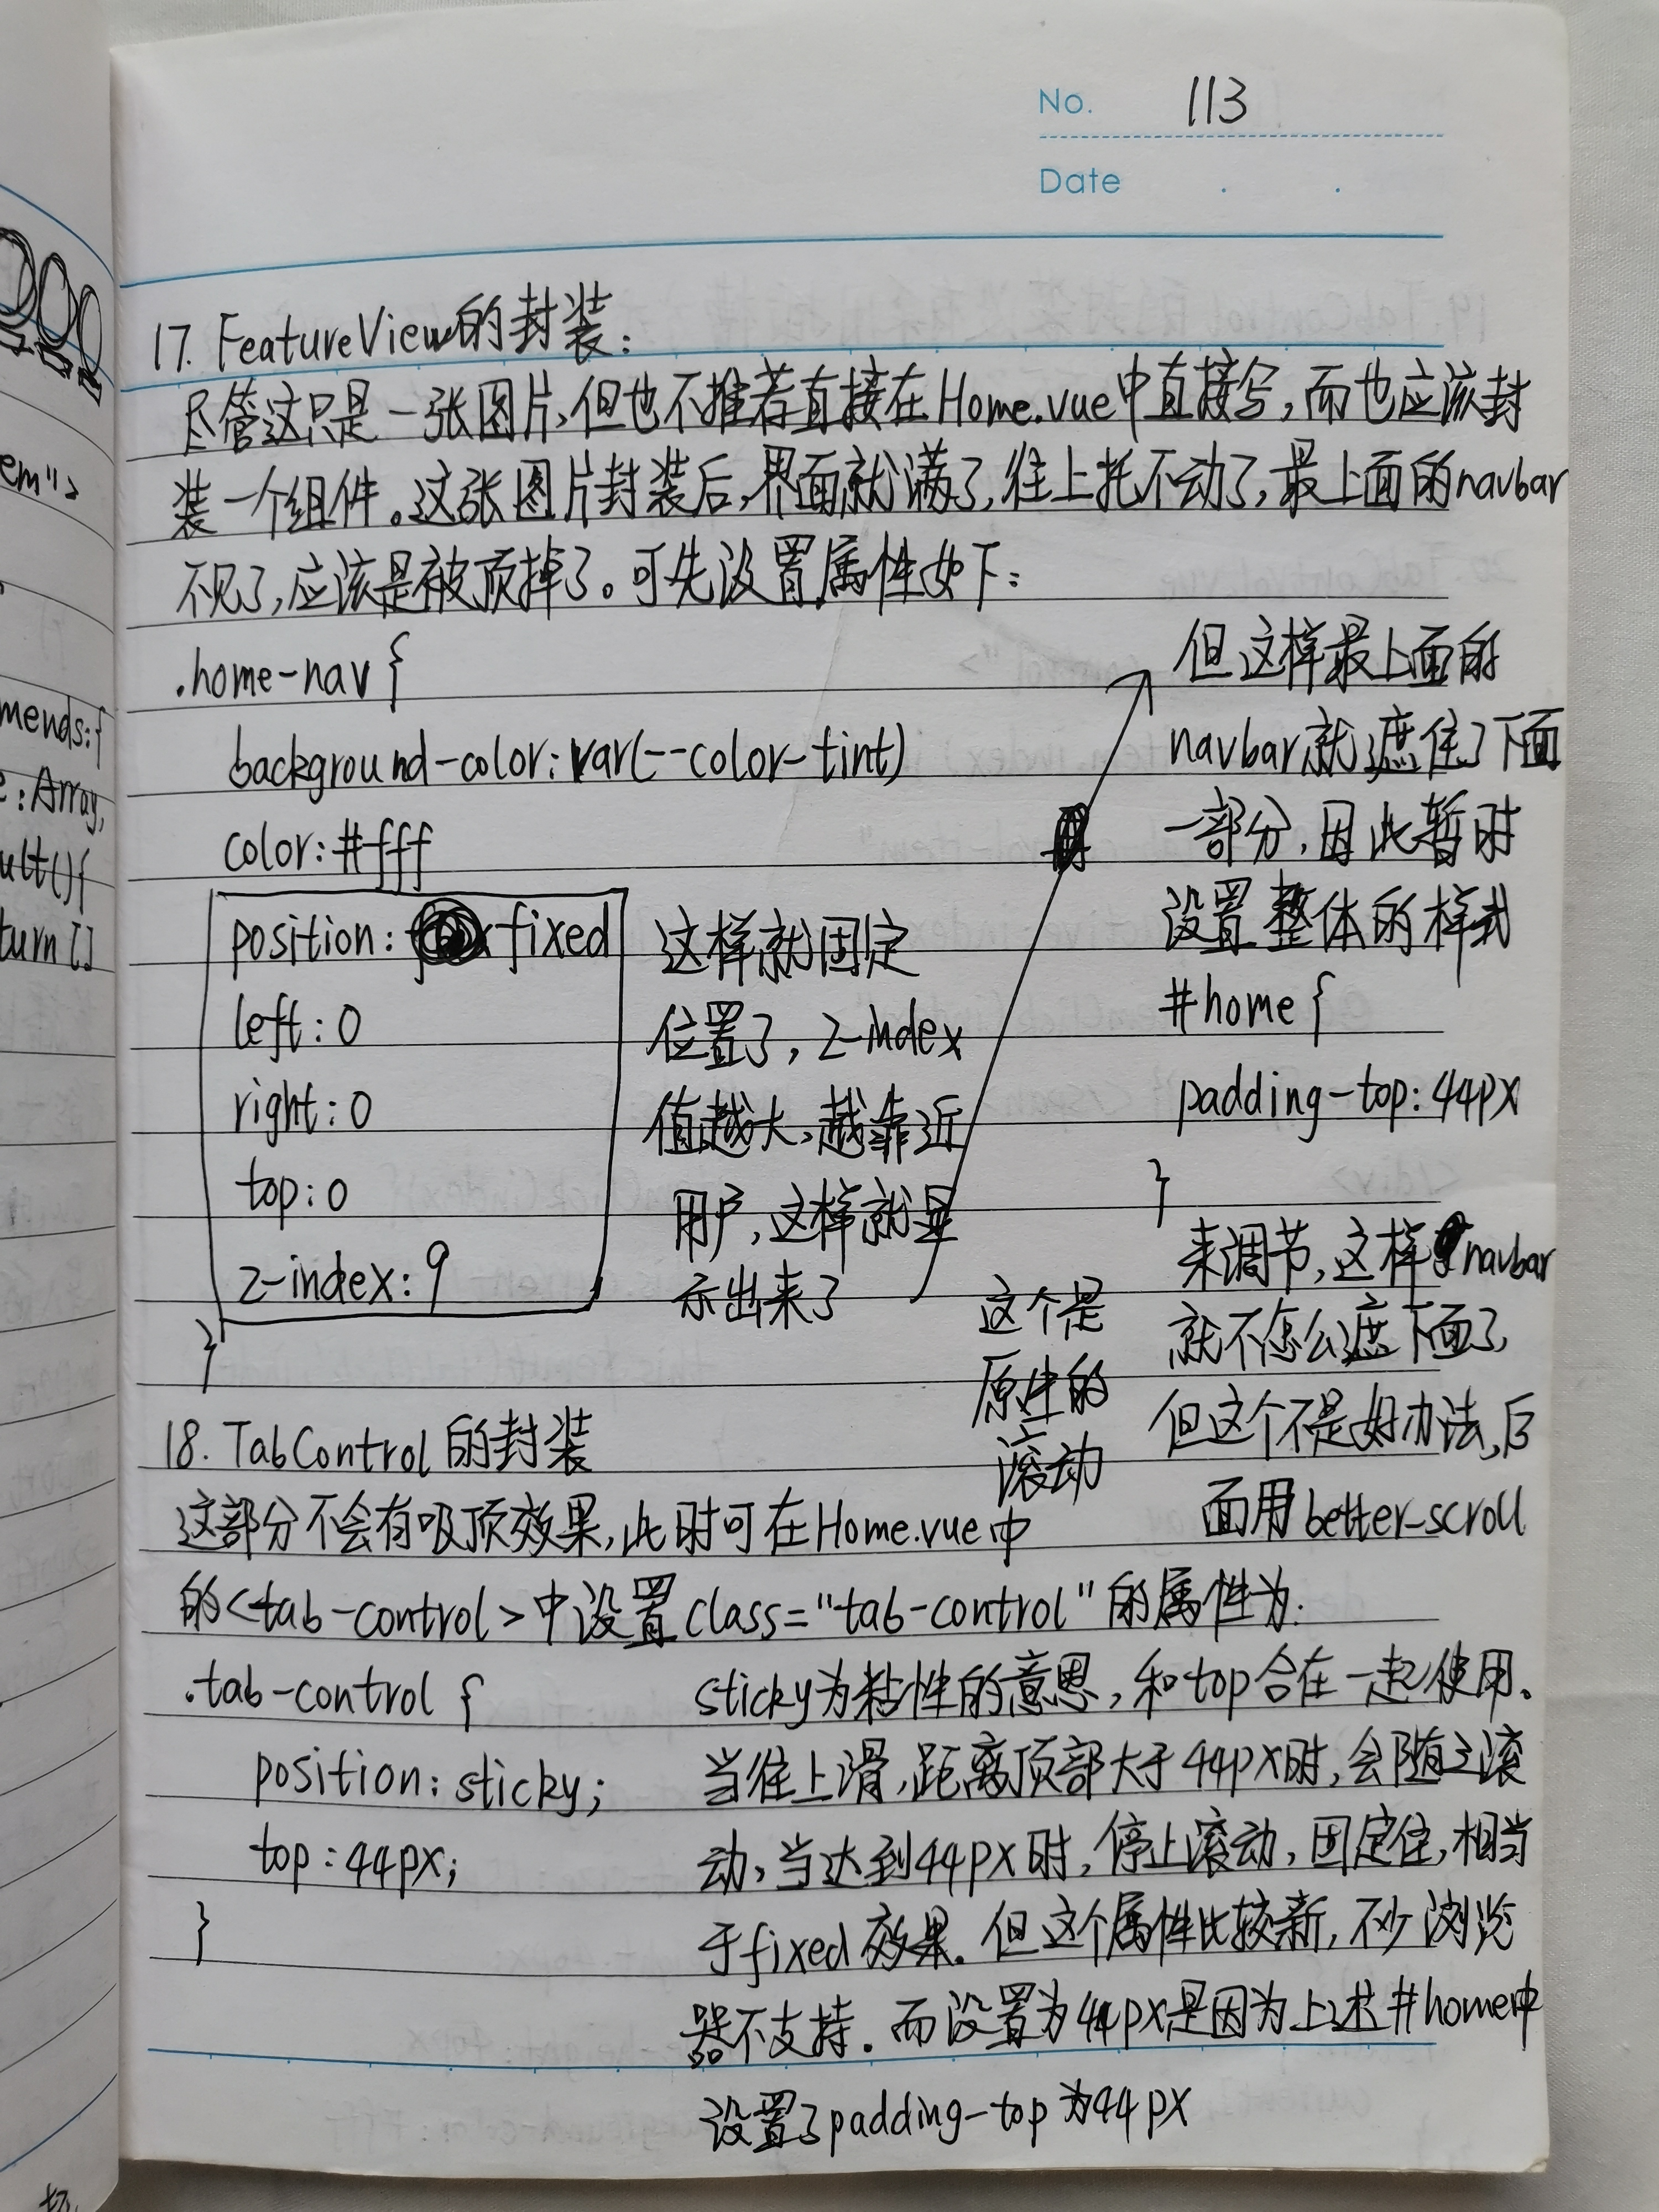 No. 113
Date . .
17. FeatureView的封装:
尽管这只是一张图片,但也不推荐直接在Home.vue中直接写,而也应该封
装一个组件。这张图片封装后,界面就满了,往上托不动了,最上面的navbar
不见了,应该是被顶掉了。可先设置属性如下:
.home-nav {
background-color: var(--color-tint)
color: #fff
position: fixed
left: 0
right: 0
top: 0
z-index: 9
}
这样就固定
位置了, z-index
值越大,越靠近
用户,这样就显
示出来了
但这样最上面的
navbar就遮住了下面
一部分,因此暂时
设置整体的样式
#home {
padding-top: 44px
}
来调节,这样navbar
就不怎么遮下面了,
但这个不是好办法,后
面用better-scroll
这个是
原生的
滚动
18. TabControl的封装
这部分不会有吸顶效果,此时可在Home.vue中
的<tab-control>中设置class="tab-control"的属性为:
.tab-control {
position: sticky;
top: 44px;
}
sticky为粘性的意思,和top合在一起使用.
当往上滑,距离顶部大于44px时,会随之滚
动,当达到44px时,停止滚动,固定住,相当
于fixed效果.但这个属性比较新,不少浏览
器不支持.而设置为44px是因为上述#home中
设置了padding-top为44px
em">
mends: {
e: Array,
ult() {
turn []